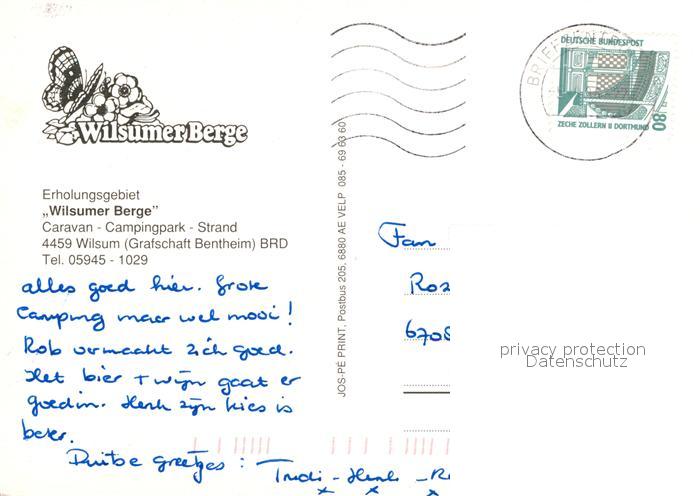 Wilsumer Berge
BRIEFZENT
DEUTSCHE BUNDESPOST
ZECHE ZOLLERN II DORTMUND
80
Erholungsgebiet
„Wilsumer Berge”
Caravan - Campingpark - Strand
4459 Wilsum (Grafschaft Bentheim) BRD
Tel. 05945 - 1029
alles goed hier. Grote
Camping maar wel mooi!
Rob vermaakt zich goed.
Het bier + wijn gaat er
goed in. Henk zijn kies is
beter.
Duitse greetjes :
Trudi - Henk - R
JOS-PÉ PRINT, Postbus 205, 6880 AE VELP 085 - 69 63 60
Fam
Roz
6708
privacy protection
Datenschutz